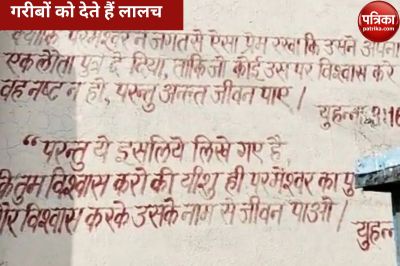 गरीबों को देते हैं लालच
पत्रिका
patrika.com
क्योंकि परमेश्वर ने जगत से ऐसा प्रेम रखा कि उसने अपना
एकलौता पुत्र दे दिया, ताकि जो कोई उस पर विश्वास करे
वह नष्ट न हो, परन्तु अनन्त जीवन पाए।
युहन्ना 3:16
"परन्तु ये इसलिये लिखे गए है,
के तुम विश्वास करो की यीशु ही परमेश्वर का पु
और विश्वास करके उसके नाम से जीवन पाओ।
युहन्